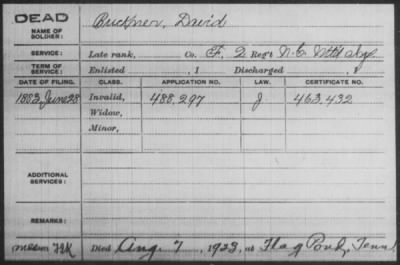 DEAD
Buckner, David
NAME OF SOLDIER:
SERVICE: Late rank, Co. F, 2 Reg't N.C. Mtd Inf.
TERM OF SERVICE: Enlisted , 1 Discharged , 1
DATE OF FILING. CLASS. APPLICATION NO. LAW. CERTIFICATE NO.
1883, June 28 Invalid, 488,297 J 463,432
Widow,
Minor,
ADDITIONAL SERVICES:
REMARKS:
Died Aug. 7, 1923, at Flag Pond, Tenn